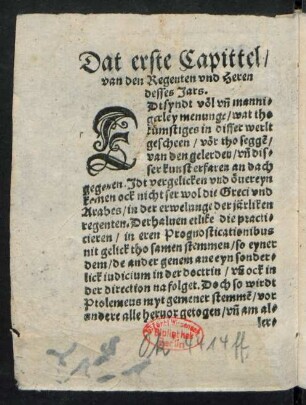 Dat erste Capittel/
van den Regenten vnd Heren
desses Jars.
EDtsyndt vől vñ manni-
gerley menunge/wat tho
kumstiges in disser werlt
gescheen/vőr tho seggē/
van den gelerden/vñ dis-
ser kunst erfaren an dach
gegeuen. Idt vergelicken vnd ővereyn
kamen ock nicht ser wol die Greci vnd
Arabes/in der erwelunge der järliken
regenten. Derhaluen etlike die practi-
cieren/in eren Prognosticationibus
nit gelick tho samen stemmen/so eyner
dem/de ander genem aneeyn sonder-
lick iudicium in der doctrin/vñ ock in
der direction na folget. Doch so wirdt
Ptolemeus myt gemener stemmē/vor
andere alle heruor getogen/vñ am al-
ler-